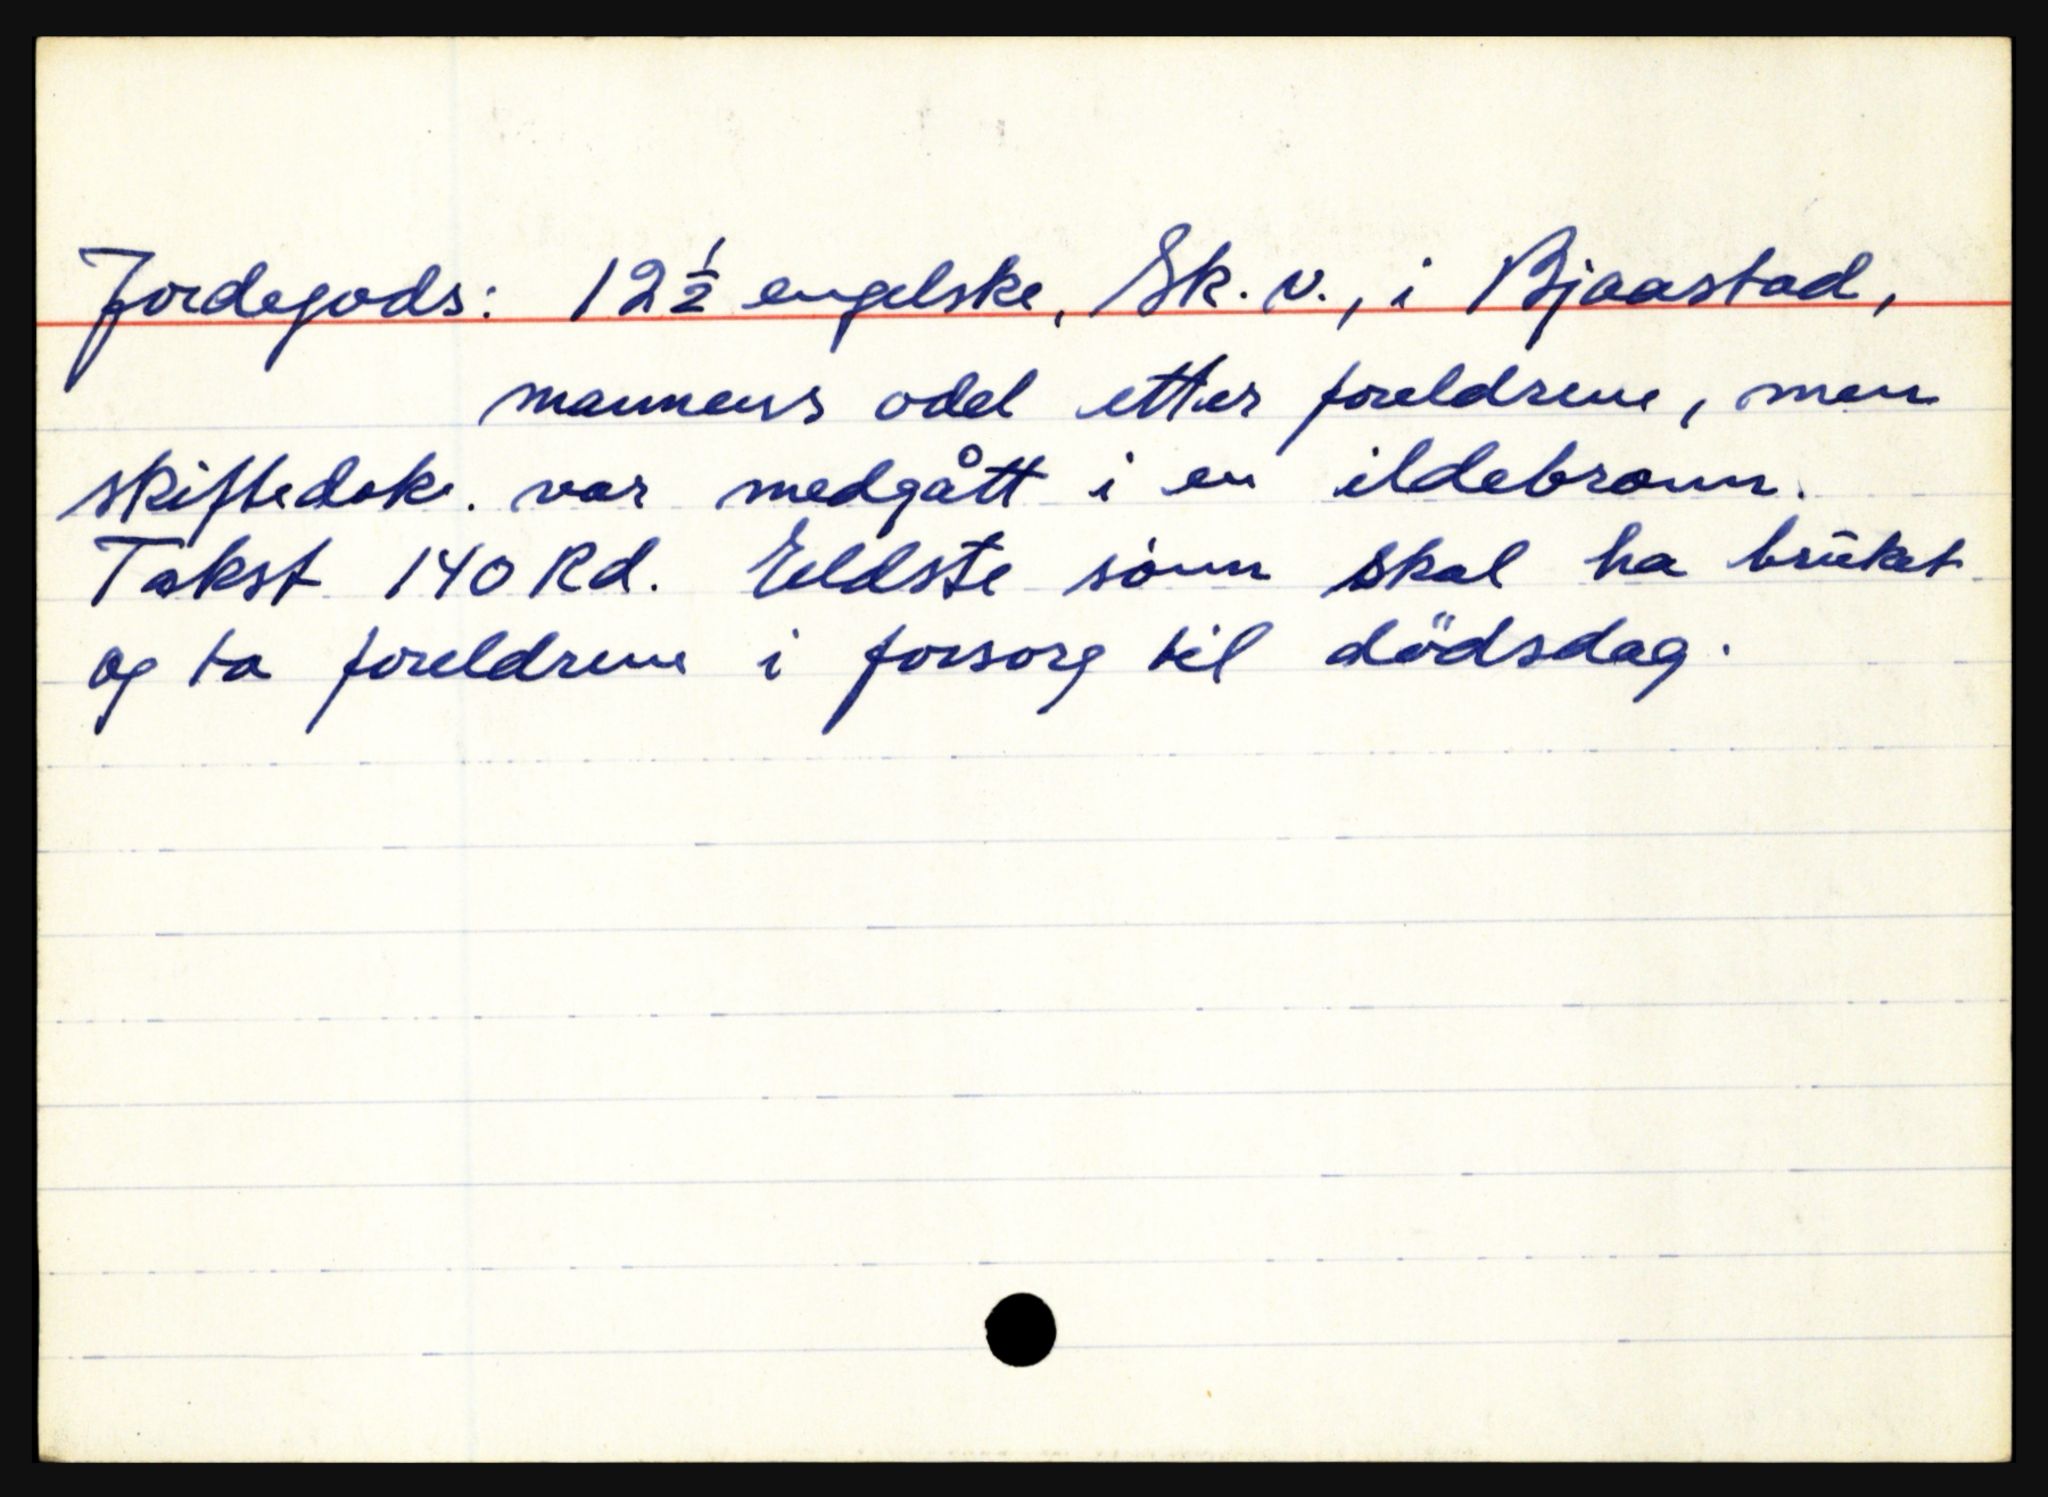 Jordegods: 12½ engelske, Sk. v., i Bjaastad,
mannens odel etter foreldrene, men
skiftedok. var medgått i en ildebrann.
Takst 140 Rd. Eeldste sönn skal ha brūket
og ta foreldrene i forsorg til dödsdag.